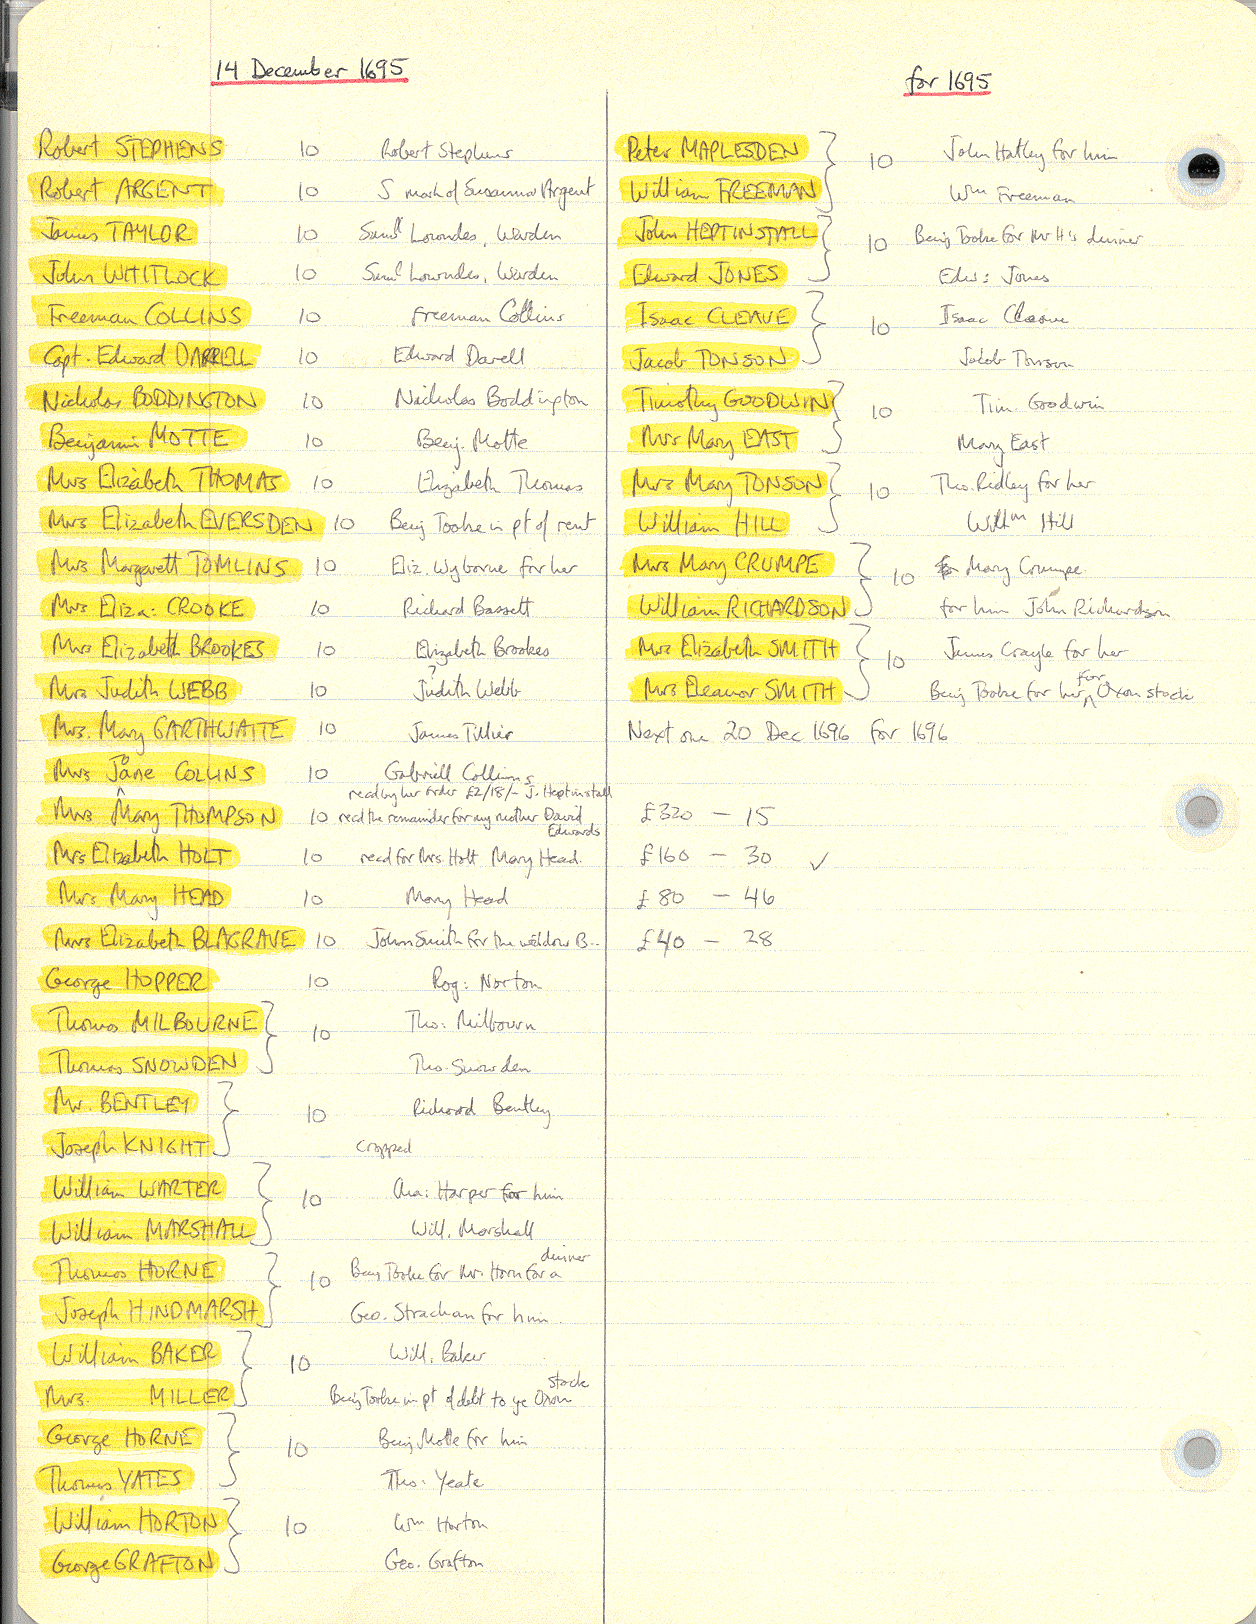 14 December 1695
Robert STEPHENS 10 Robert Stephens
Robert ARGENT 10 S mark of Susanna Argent
James TAYLOR 10 Saml Lowndes, Warden
John WHITLOCK 10 Saml Lowndes, Warden
Freeman COLLINS 10 Freeman Collins
Capt. Edward DARRELL 10 Edward Darell
Nicholas BODDINGTON 10 Nicholas Boddington
Benjamin MOTTE 10 Benj. Motte
Mrs Elizabeth THOMAS 10 Elizabeth Thomas
Mrs Elizabeth EVERSDEN 10 Benj Tooke in pt of rent
Mrs Margarett TOMLINS 10 Eliz. Wyborne for her
Mrs Eliza: CROOKE 10 Richard Bassett
Mrs Elizabeth BROOKES 10 Elizabeth Brookes
Mrs Judith WEBB 10 ? Judith Webb
Mrs. Mary GARTHWAITE 10 James Tillier
Mrs Jane COLLINS 10 Gabriell Collins
recd by her order £2/18/- J. Heptinstall
Mrs Mary THOMPSON 10 recd the remainder for my mother David
Edwards
Mrs Elizabeth HOLT 10 recd for Mrs. Holt Mary Head.
Mrs Mary HEAD 10 Mary Head
Mrs Elizabeth BLAGRAVE 10 John Smith for the widdow B..
George HOPPER 10 Rog: Norton
Thomas MILBOURNE } 10 Tho: Milbourn
Thomas SNOWDEN Tho. Snowden
Mr. BENTLEY } 10 Richard Bentley
Joseph KNIGHT cropped
William WARTER } 10 Cha: Harper for him
William MARSHALL Will. Marshall
Thomas HORNE } 10 Benj Tooke for Mr. Horn for a dinner
Joseph HINDMARSH Geo. Strachan for him
William BAKER } 10 Will. Baker
Mrs. MILLER Benj Tooke in pt of debt to ye Oxon stock
George HORNE } 10 Benj Motte for him
Thomas YATES Tho: Yeate
William HORTON } 10 Wm Horton
George GRAFTON Geo. Grafton
for 1695
Peter MAPLESDEN } 10 John Hatley for him
William FREEMAN Wm Freeman
John HEPTINSTALL } 10 Benj Tooke for Mr H's dinner
Edward JONES Edw: Jones
Isaac CLEAVE } 10 Isaac Cleave
Jacob TONSON Jacob Tonson
Timothy GOODWIN } 10 Tim. Goodwin
Mrs Mary EAST Mary East
Mrs Mary TONSON } 10 Tho. Ridley for her
William HILL Willm Hill
Mrs Mary CRUMPE } 10 Mary Crumpe
William RICHARDSON for him John Richardson
Mrs Elizabeth SMITH } 10 James Crayle for her
Mrs Eleanor SMITH Benj Tooke for her for Oxon stock
Next one 20 Dec 1696 for 1696
£320 - 15
£160 - 30 ✓
£80 - 46
£40 - 28